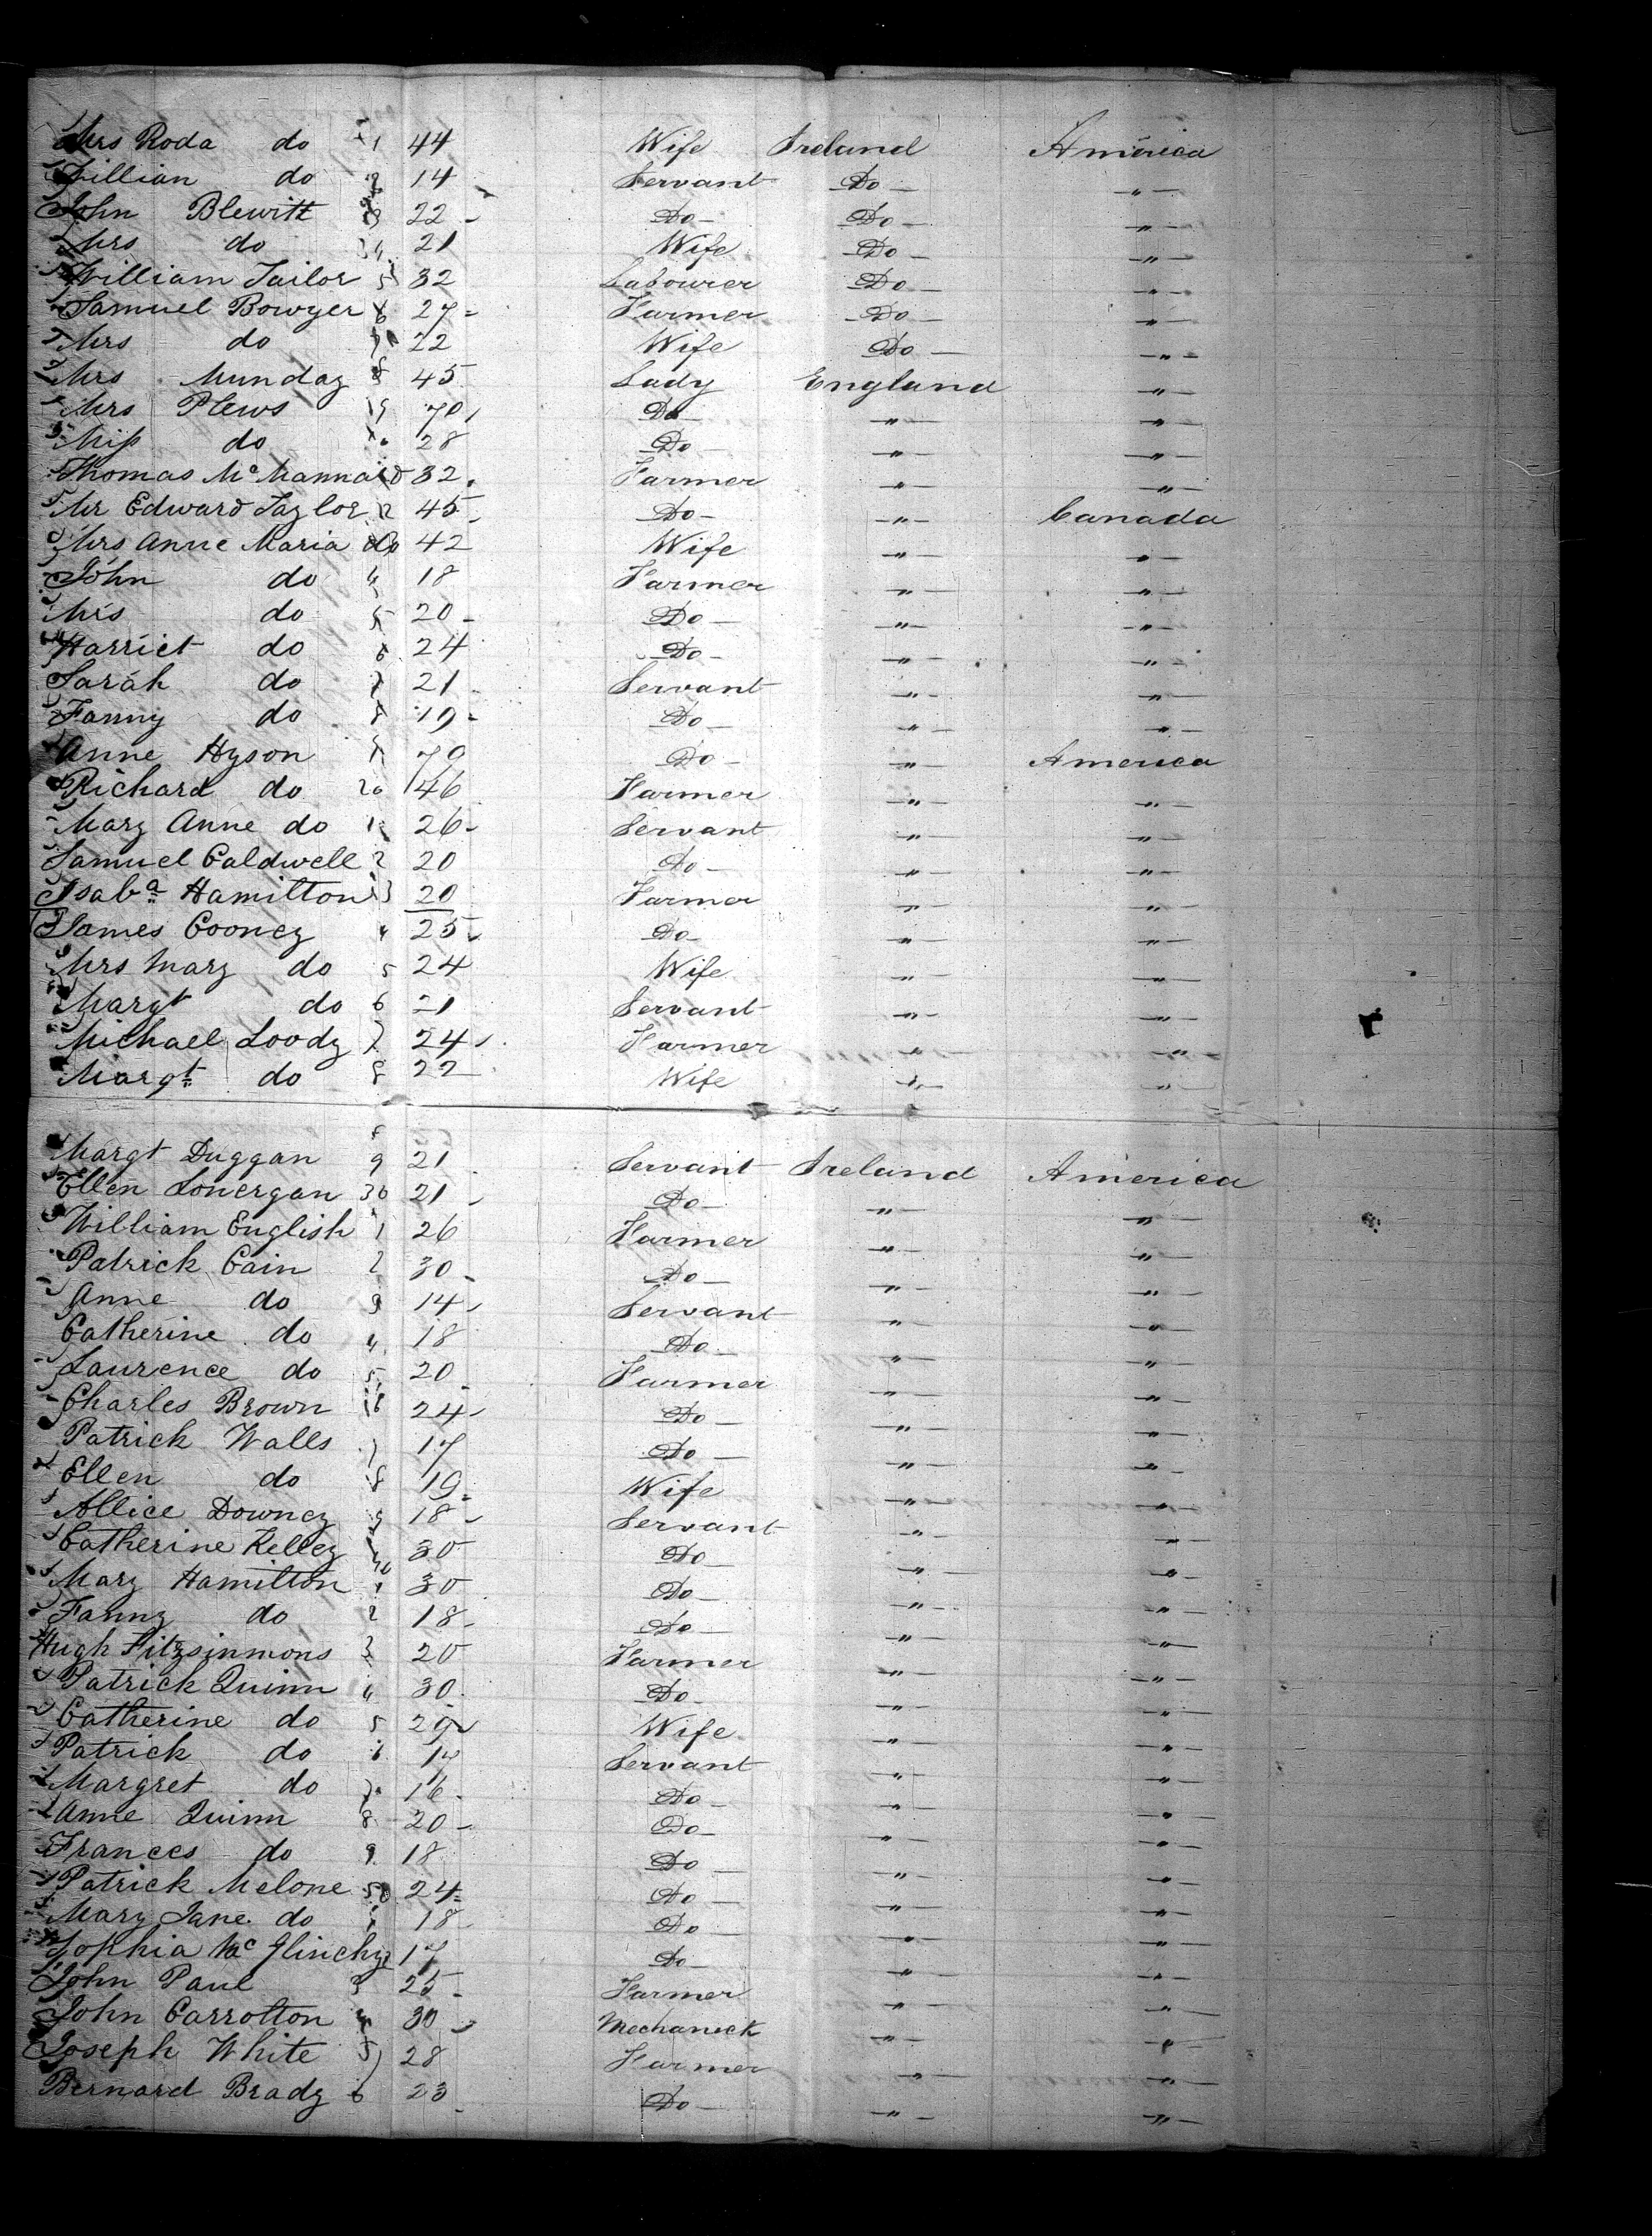 Mrs Roda do 1 44 Wife Ireland America
Lillian do 2 14 Servant Do — " —
John Blewitt 3 22 - Do — Do — " —
Mrs do 4 21 Wife Do — " —
William Tailor 5 32 Labourer Do — " —
Samuel Bowyer 6 27 - Farmer Do — " —
Mrs do 7 22 Wife Do — " —
Mrs Munday 8 45 Lady England " —
Mrs Plews 9 70 Do — " — " —
Miss do 10 28 Do — " — " —
Thomas Mc Mannaid 32 Farmer " — " —
Mr Edward Taylor 12 45 - Do — " — Canada
Mrs Anne Maria do 42 Wife " — " —
John do 4 18 Farmer " — " —
Mrs do 5 20 - Do — " — " —
Harriet do 6 24 Do — " — " —
Sarah do 7 21 Servant " — " —
Fanny do 8 19 - Do — " — " —
Anne Hyson 79 Do — " — America
Richard do 20 46 Farmer " — " —
Mary Anne do 1 26 - Servant " — " —
Samuel Caldwell 2 20 Do — " — " —
Isaba Hamilton 3 20 Farmer " — " —
James Cooney 4 25 Do — " — " —
Mrs Mary do 5 24 Wife " — " —
Margt do 6 21 Servant " — " —
Michael Loody 7 24 Farmer " — " —
Margt do 8 22 Wife " — " —
Margt Duggan 9 21 Servant Ireland America
Ellen Lonergan 30 21 - Do — " — " —
William English 1 26 Farmer " — " —
Patrick Cain 2 30 - Do — " — " —
Anne do 3 14 Servant " — " —
Catherine do 4 18 Do — " — " —
Laurence do 5 20 Farmer " — " —
Charles Brown 6 24 - Do — " — " —
Patrick Walls 7 17 Do — " — " —
Ellen do 8 19 - Wife " — " —
Allice Downey 9 18 - Servant " — " —
Catherine Kelley 40 30 Do — " — " —
Mary Hamilton 1 30 Do — " — " —
Fanny do 2 18 - Do — " — " —
Hugh Fitzsinmons 3 20 Farmer " — " —
Patrick Quinn 4 30 Do — " — " —
Catherine do 5 29 Wife " — " —
Patrick do 6 17 Servant " — " —
Margret do 7 16 Do — " — " —
Anne Quinn 8 20 - Do — " — " —
Frances do 9 18 Do — " — " —
Patrick Melone 50 24 - Do — " — " —
Mary Jane do 1 18 Do — " — " —
Sophia Mc Glinchy 2 17 Do — " — " —
John Paul 3 25 - Farmer " — " —
John Carrolton 4 30 - Mechanick " — " —
Joseph White 5 28 Farmer " — " —
Bernard Brady 6 23 Do — " — " —